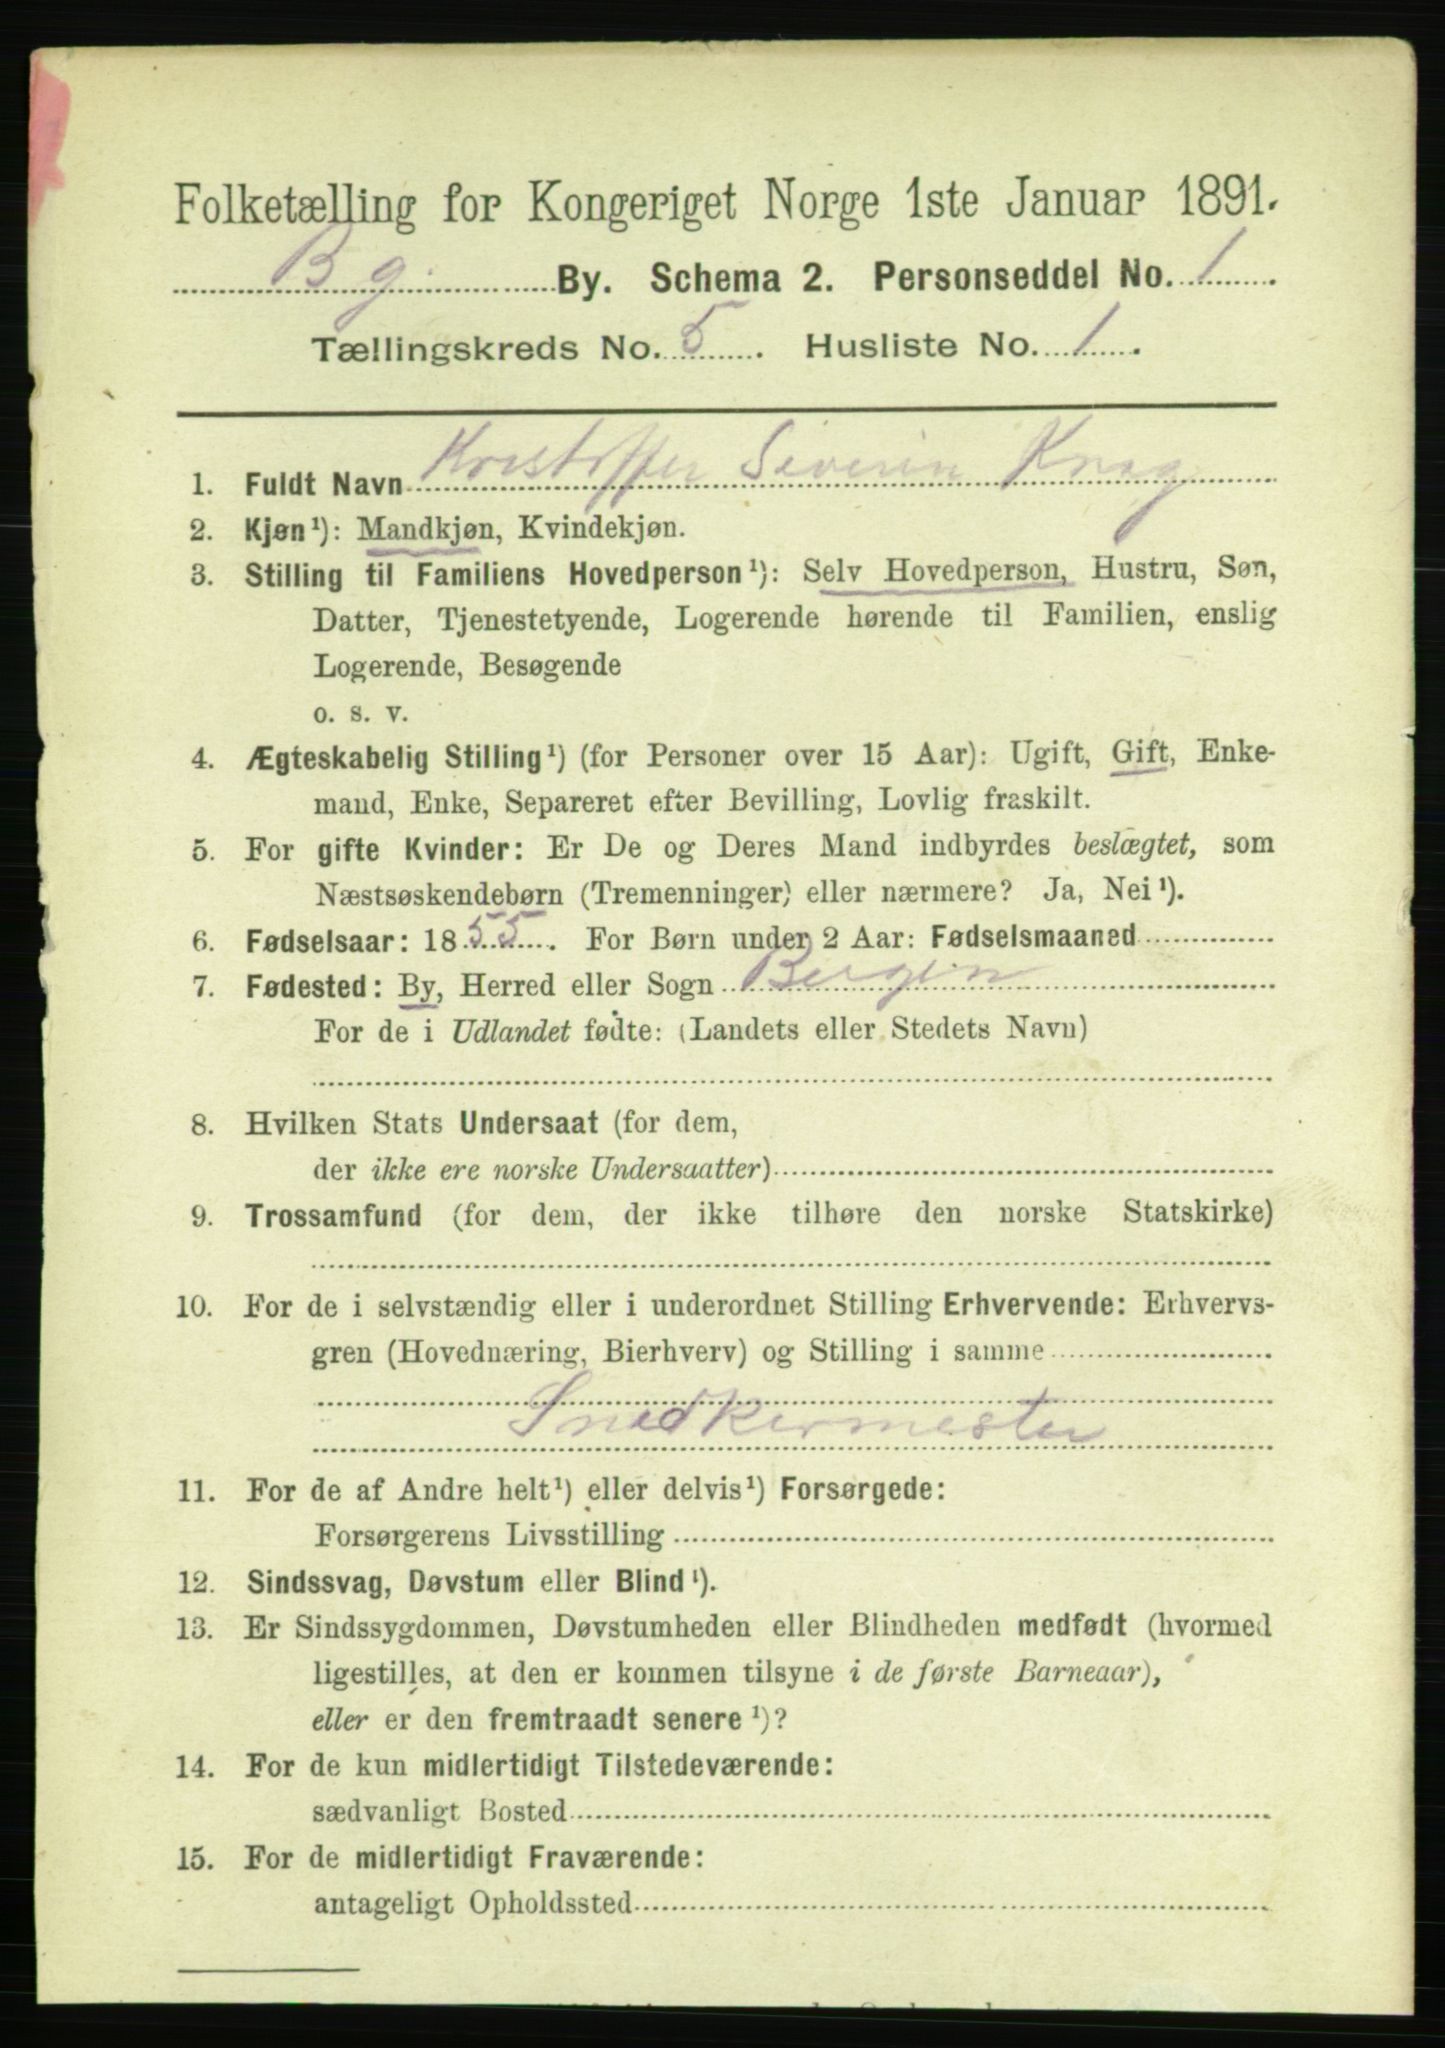 Folketælling for Kongeriget Norge 1ste Januar 1891.
Bg. By. Schema 2. Personseddel No. 1.
Tællingskreds No. 5. Husliste No. 1.
1. Fuldt Navn Kristoffer Severin Knag
2. Kjøn¹): Mandkjøn, Kvindekjøn.
3. Stilling til Familiens Hovedperson¹): Selv Hovedperson, Hustru, Søn,
Datter, Tjenestetyende, Logerende hørende til Familien, enslig
Logerende, Besøgende
o. s. v.
4. Ægteskabelig Stilling¹) (for Personer over 15 Aar): Ugift, Gift, Enke-
mand, Enke, Separeret efter Bevilling, Lovlig fraskilt.
5. For gifte Kvinder: Er De og Deres Mand indbyrdes beslægtet, som
Næstsøskendebørn (Tremenninger) eller nærmere? Ja, Nei¹).
6. Fødselsaar: 1855. For Børn under 2 Aar: Fødselsmaaned
7. Fødested: By, Herred eller Sogn Bergen
For de i Udlandet fødte: (Landets eller Stedets Navn)
8. Hvilken Stats Undersaat (for dem,
der ikke ere norske Undersaatter)
9. Trossamfund (for dem, der ikke tilhøre den norske Statskirke)
10. For de i selvstændig eller i underordnet Stilling Erhvervende: Erhvervs-
gren (Hovednæring, Bierhverv) og Stilling i samme
Snedkermester
11. For de af Andre helt¹) eller delvis¹) Forsørgede:
Forsørgerens Livsstilling
12. Sindssvag, Døvstum eller Blind¹).
13. Er Sindssygdommen, Døvstumheden eller Blindheden medfødt (hvormed
ligestilles, at den er kommen tilsyne i de første Barneaar),
eller er den fremtraadt senere¹)?
14. For de kun midlertidigt Tilstedeværende:
sædvanligt Bosted
15. For de midlertidigt Fraværende:
antageligt Opholdssted